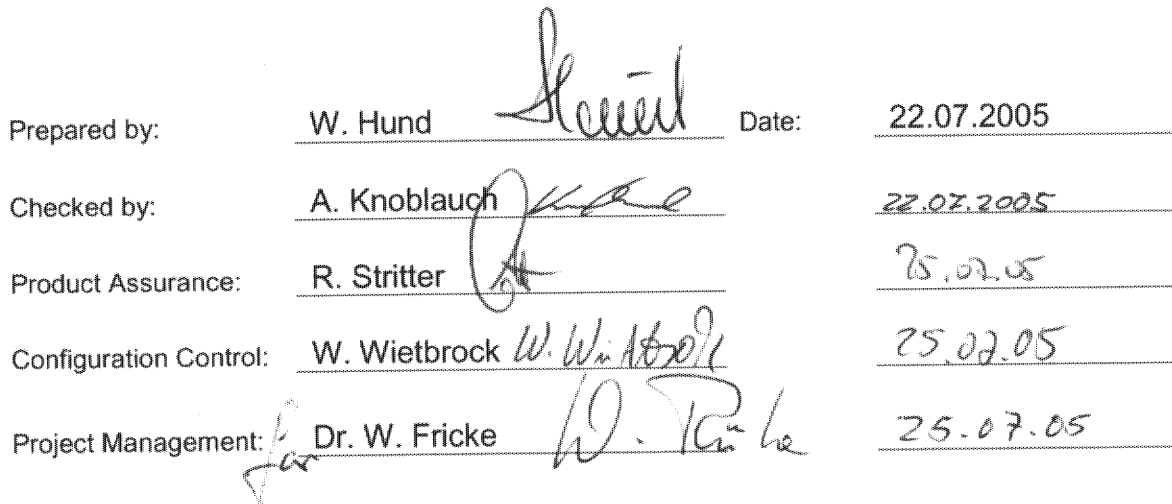 Prepared by: W. Hund Date: 22.07.2005
Checked by: A. Knoblauch 22.07.2005
Product Assurance: R. Stritter 25.07.05
Configuration Control: W. Wietbrock W. Wietbrock 25.07.05
Project Management: für Dr. W. Fricke 25.07.05